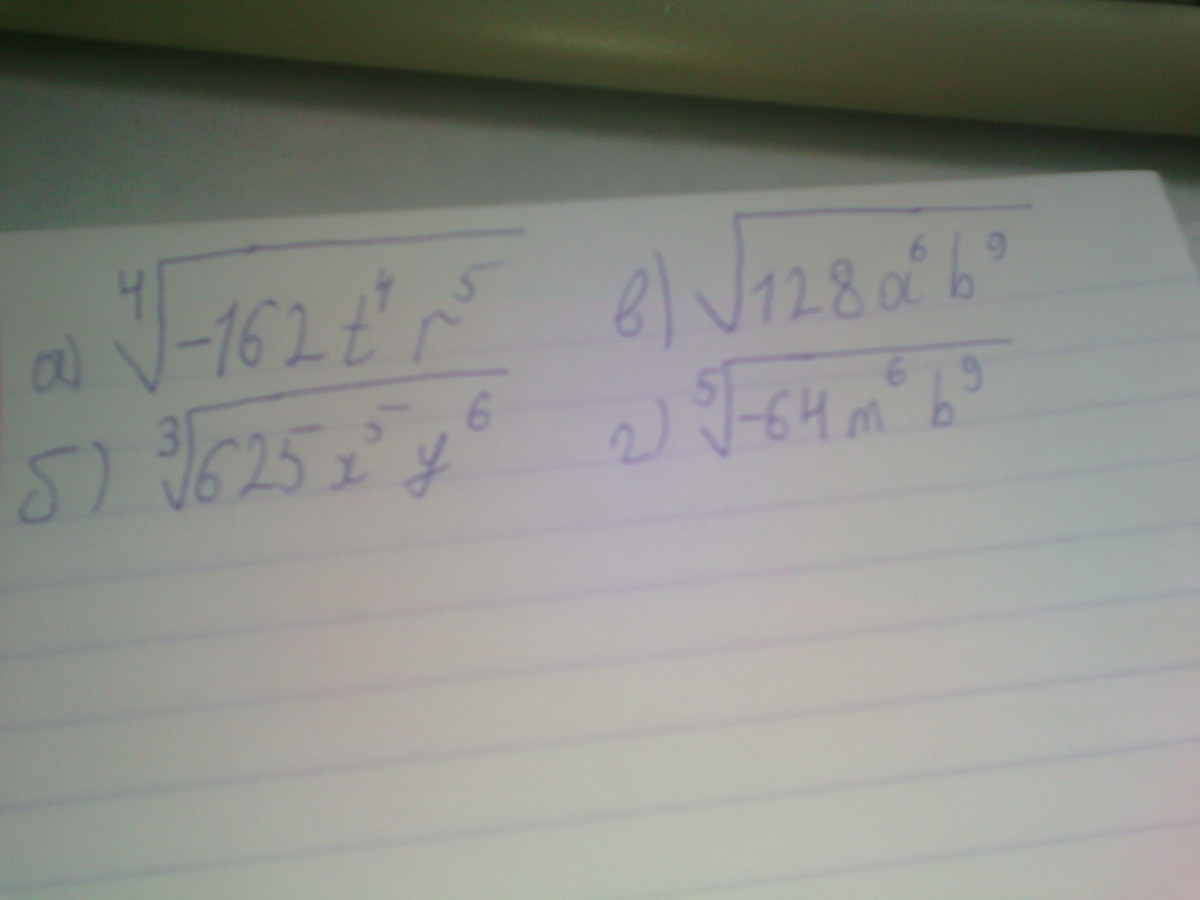 а) ⁴√(-162 t⁴ r⁵) в) √(128 a⁶ b⁹)
б) ³√(625 x⁵ y⁶) г) ⁵√(-64 m⁶ b⁹)